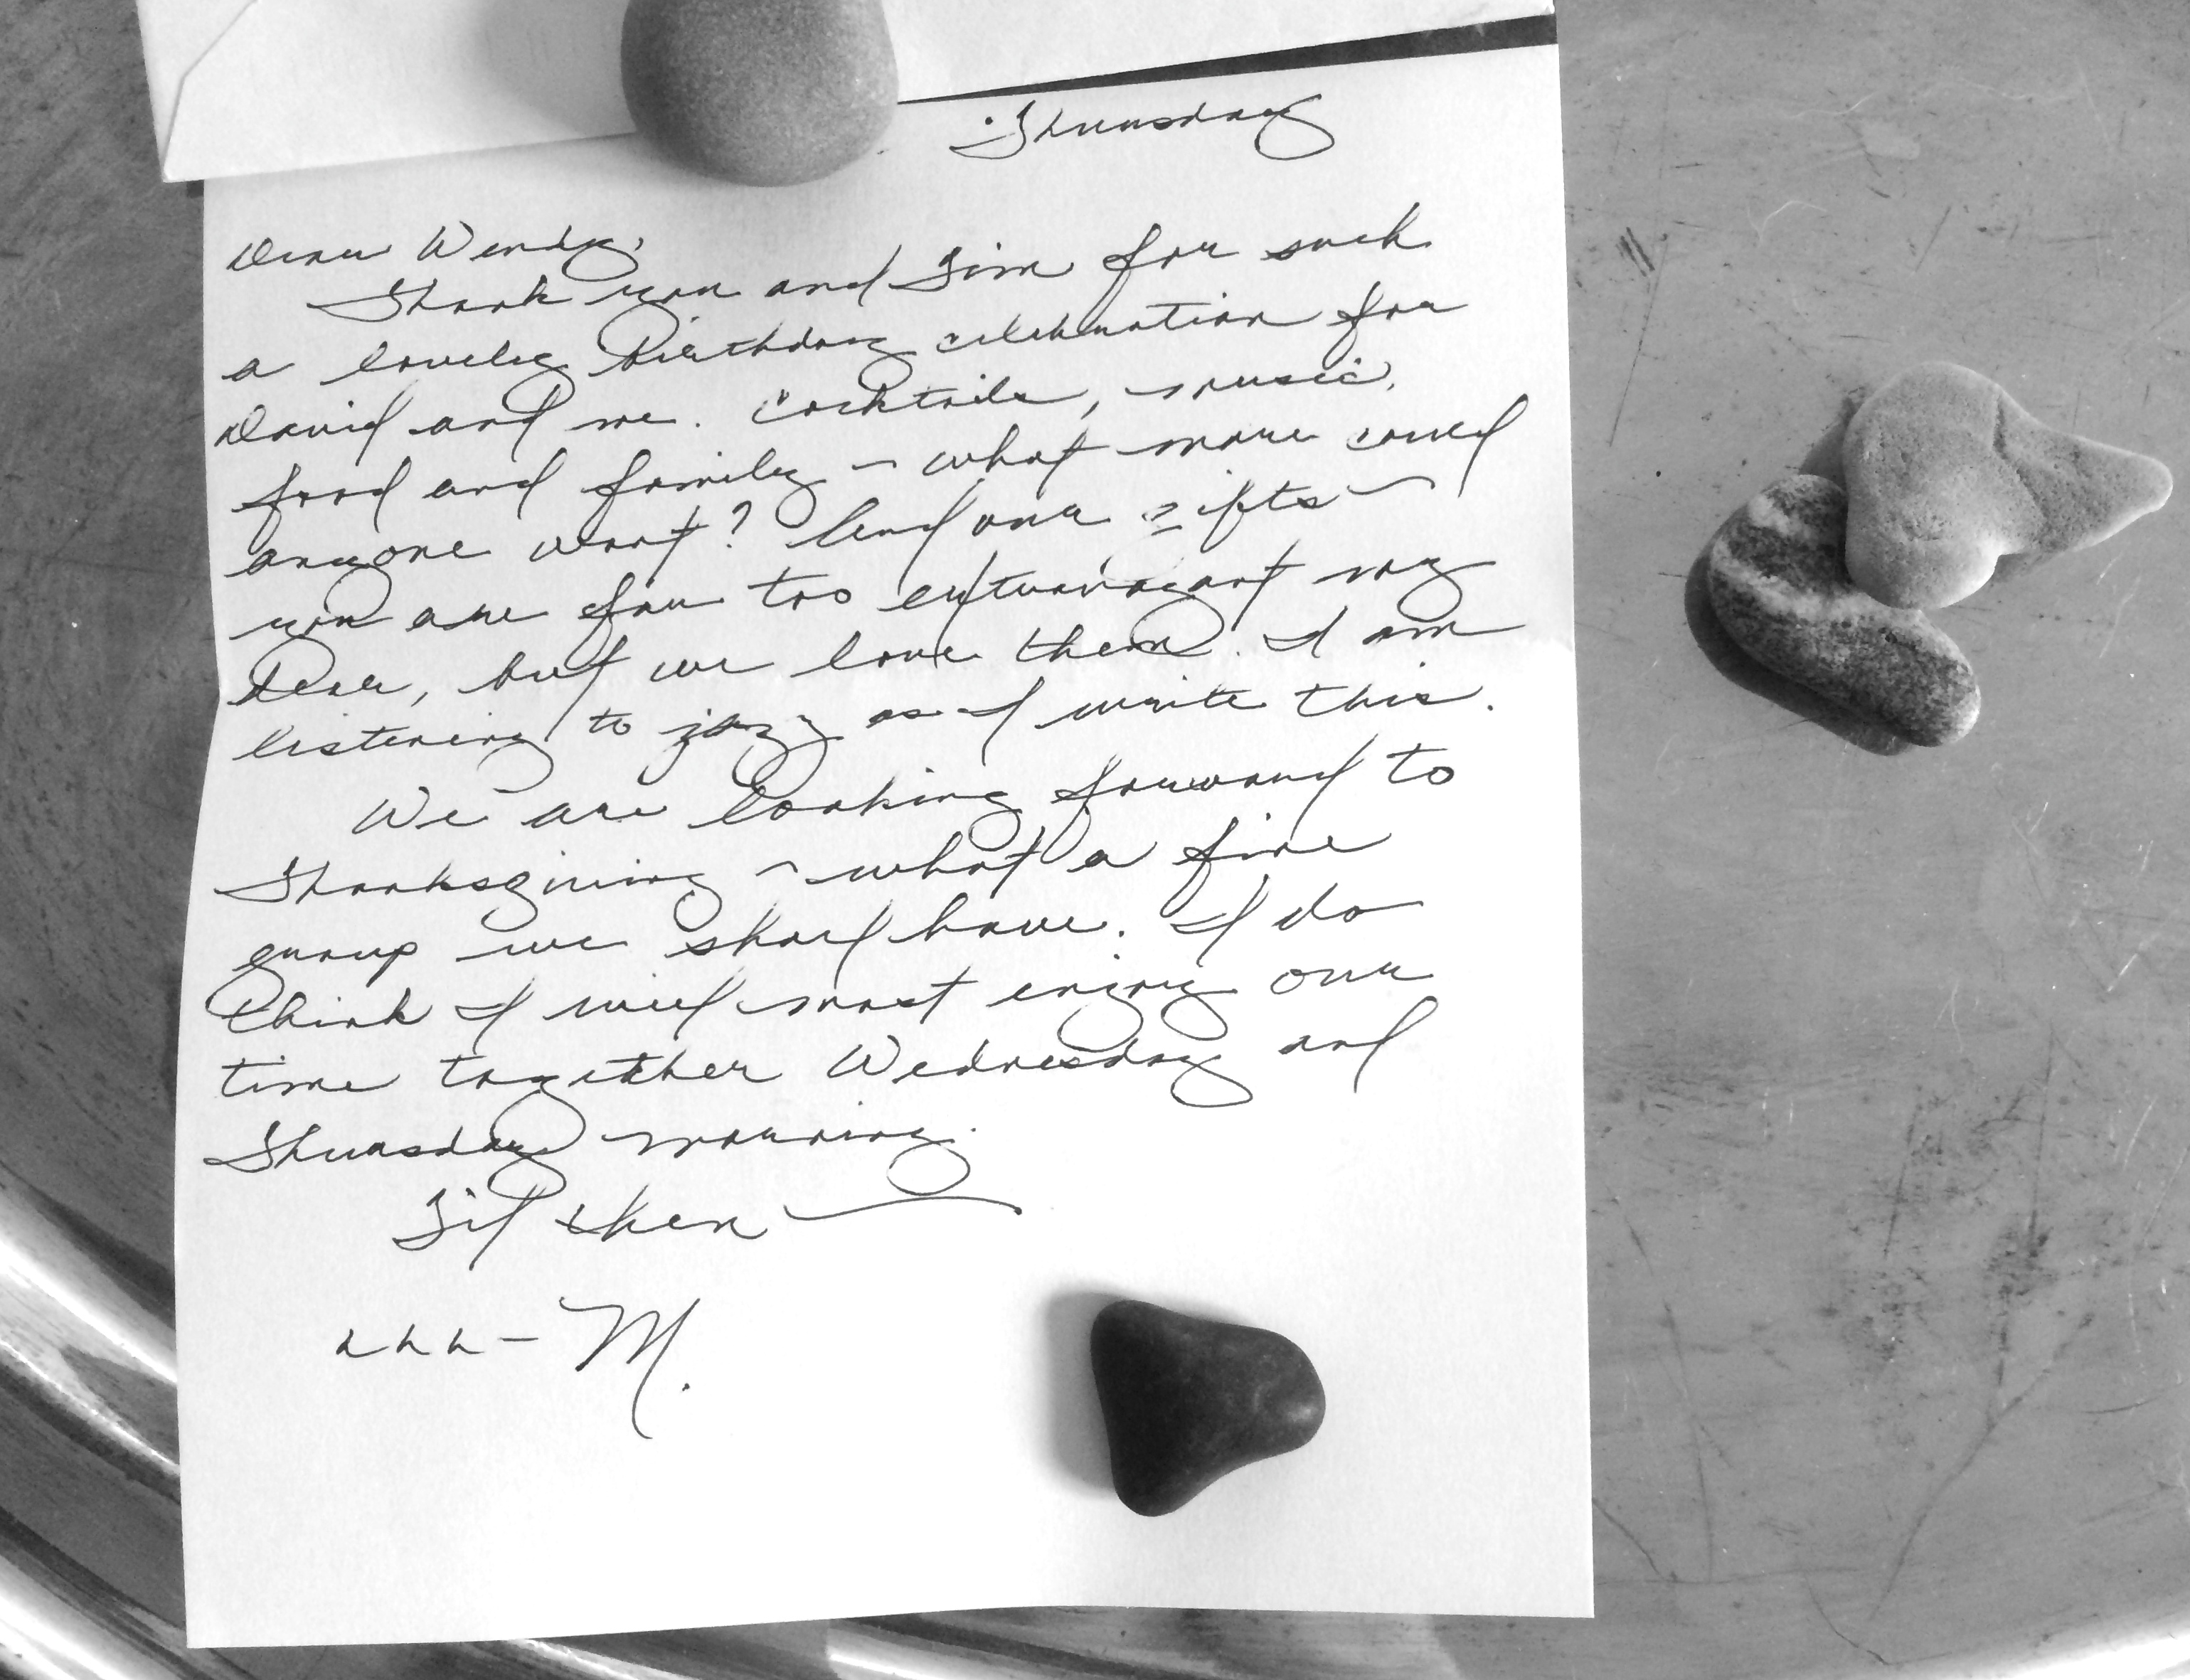 Thursday
Dear Wendy,
Thank you and Tim for such
a lovely birthday celebration for
David and me. Cocktails, music,
food and family – what more could
anyone want? And our gifts –
you are far too extravagant my
dear, but we love them. I am
listening to jazz as I write this.
We are looking forward to
Thanksgiving – what a fine
group we shall have. I do
think I will most enjoy our
time together Wednesday and
Thursday morning.
Til then –
– M.